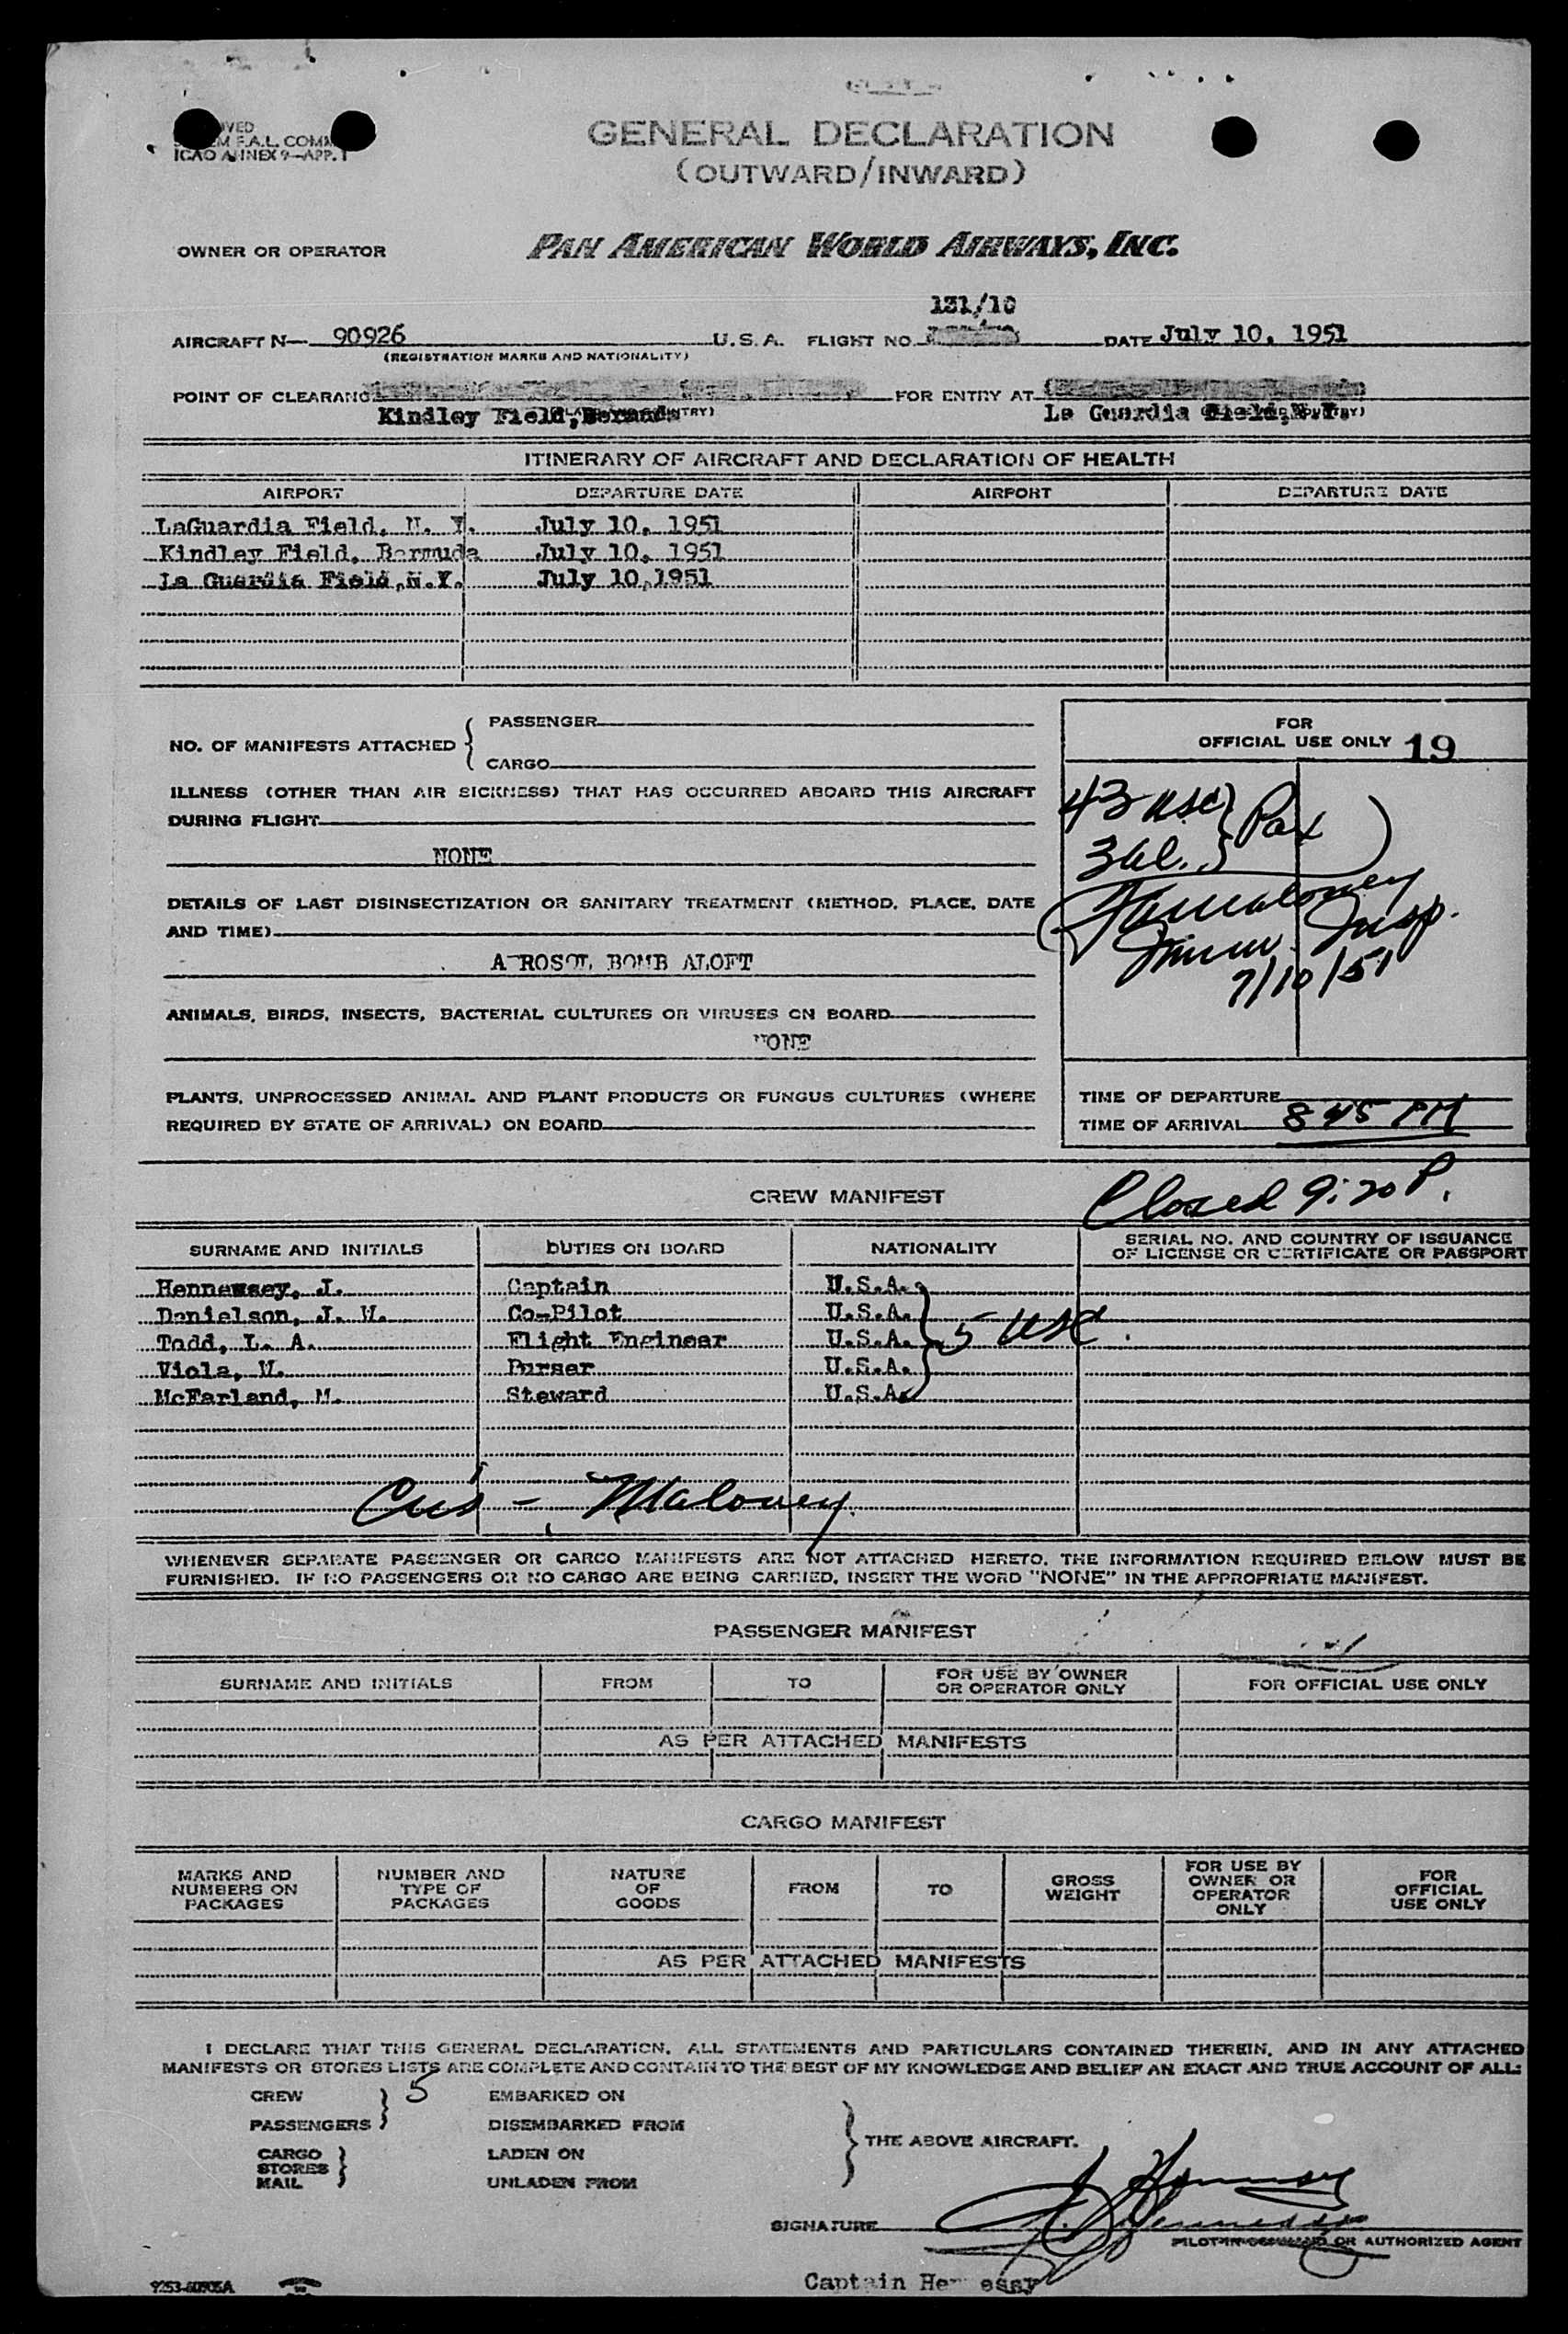 ICAO ANNEX 9—APP. 1
GENERAL DECLARATION
(OUTWARD/INWARD)
OWNER OR OPERATOR PAN AMERICAN WORLD AIRWAYS, INC.
131/10
AIRCRAFT N— 90926 U.S.A. FLIGHT NO. DATE July 10, 1951
(REGISTRATION MARKS AND NATIONALITY)
POINT OF CLEARANCE FOR ENTRY AT
Kindley Field, Bermuda La Guardia Field, N.Y.
ITINERARY OF AIRCRAFT AND DECLARATION OF HEALTH
AIRPORT DEPARTURE DATE AIRPORT DEPARTURE DATE
LaGuardia Field, N. Y. July 10, 1951
Kindley Field, Bermuda July 10, 1951
La Guardia Field,N.Y. July 10,1951
NO. OF MANIFESTS ATTACHED { PASSENGER
CARGO
FOR
OFFICIAL USE ONLY 19
ILLNESS (OTHER THAN AIR SICKNESS) THAT HAS OCCURRED ABOARD THIS AIRCRAFT
DURING FLIGHT
NONE
43 USC } Pax
3 al. }
DETAILS OF LAST DISINSECTIZATION OR SANITARY TREATMENT (METHOD, PLACE, DATE
AND TIME)
AEROSOL BOMB ALOFT
Maloney
Immig. Insp.
7/10/51
ANIMALS, BIRDS, INSECTS, BACTERIAL CULTURES OR VIRUSES ON BOARD
NONE
PLANTS, UNPROCESSED ANIMAL AND PLANT PRODUCTS OR FUNGUS CULTURES (WHERE
REQUIRED BY STATE OF ARRIVAL) ON BOARD
TIME OF DEPARTURE
TIME OF ARRIVAL 8 45 PM
Closed 9:20 P.
CREW MANIFEST
SURNAME AND INITIALS DUTIES ON BOARD NATIONALITY SERIAL NO. AND COUNTRY OF ISSUANCE
OF LICENSE OR CERTIFICATE OR PASSPORT
Hennessey, J. Captain U.S.A.
Danielson, J. W. Co-Pilot U.S.A.
Todd, L. A. Flight Engineer U.S.A. } 5 USC.
Viola, M. Purser U.S.A.
McFarland, M. Steward U.S.A.
Cus - Maloney.
WHENEVER SEPARATE PASSENGER OR CARGO MANIFESTS ARE NOT ATTACHED HERETO, THE INFORMATION REQUIRED BELOW MUST BE
FURNISHED. IF NO PASSENGERS OR NO CARGO ARE BEING CARRIED, INSERT THE WORD "NONE" IN THE APPROPRIATE MANIFEST.
PASSENGER MANIFEST
SURNAME AND INITIALS FROM TO FOR USE BY OWNER
OR OPERATOR ONLY FOR OFFICIAL USE ONLY
AS PER ATTACHED MANIFESTS
CARGO MANIFEST
MARKS AND
NUMBERS ON
PACKAGES NUMBER AND
TYPE OF
PACKAGES NATURE
OF
GOODS FROM TO GROSS
WEIGHT FOR USE BY
OWNER OR
OPERATOR
ONLY FOR
OFFICIAL
USE ONLY
AS PER ATTACHED MANIFESTS
I DECLARE THAT THIS GENERAL DECLARATION, ALL STATEMENTS AND PARTICULARS CONTAINED THEREIN, AND IN ANY ATTACHED
MANIFESTS OR STORES LISTS ARE COMPLETE AND CONTAIN TO THE BEST OF MY KNOWLEDGE AND BELIEF AN EXACT AND TRUE ACCOUNT OF ALL:
CREW } 5 EMBARKED ON
PASSENGERS DISEMBARKED FROM
} THE ABOVE AIRCRAFT.
CARGO
STORES }
MAIL
LADEN ON
UNLADEN FROM
J. Hennessy
SIGNATURE
PILOT-IN-COMMAND OR AUTHORIZED AGENT
Captain Hennessy